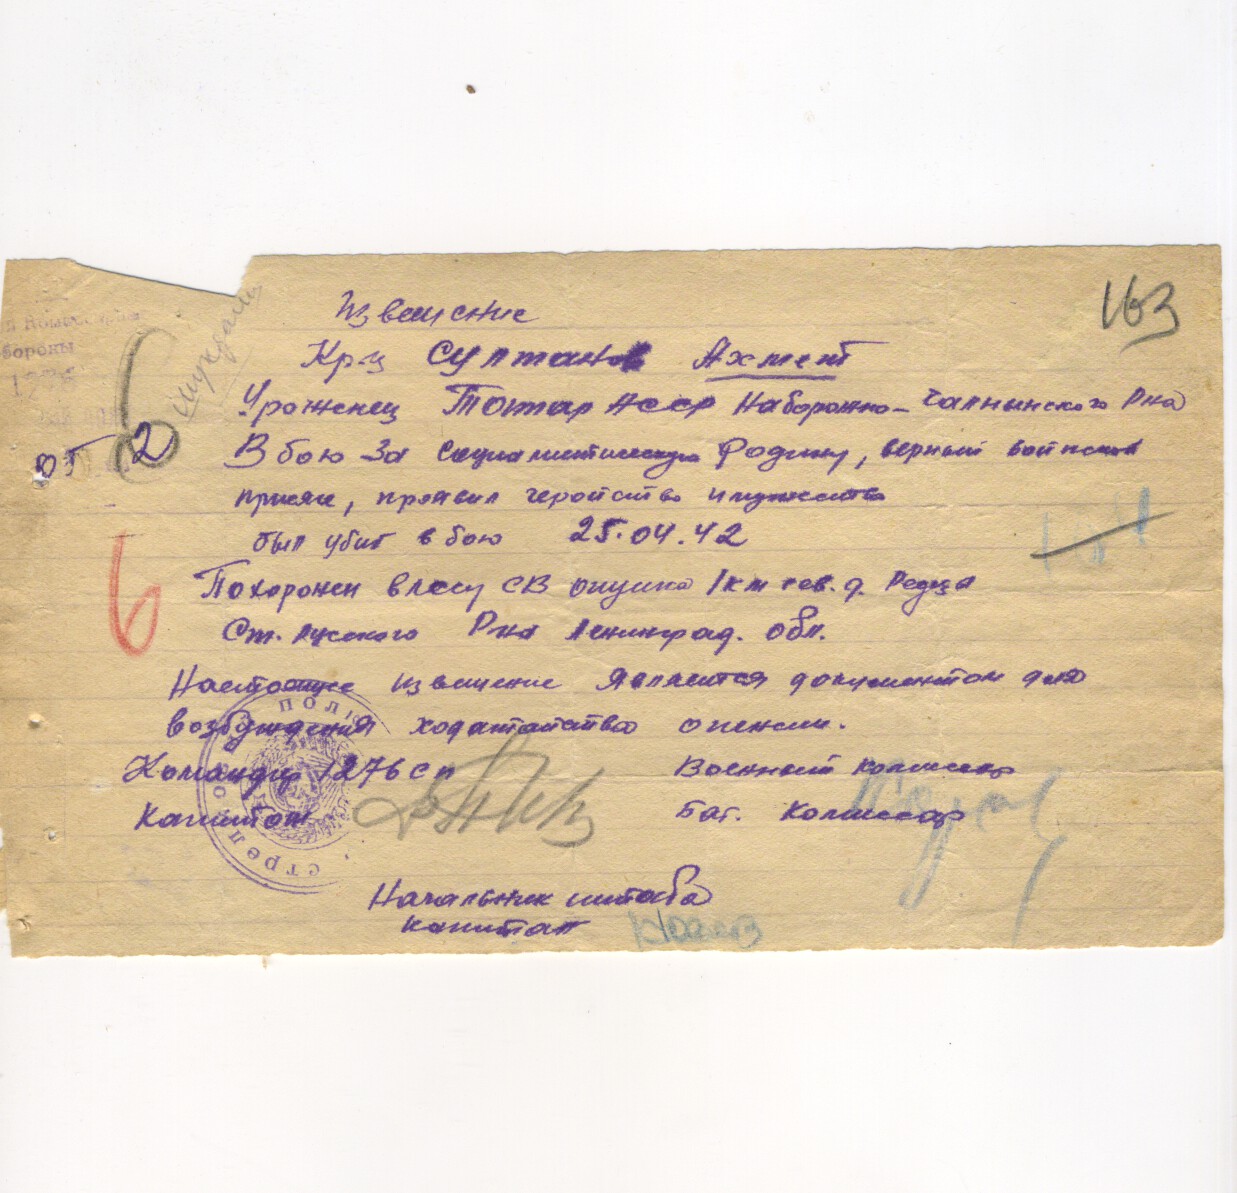 163
Извещение
Кр-ц Султанов Ахмет
Уроженец Татар АССР Наборожно-Чалнынского Р-на
В бою за Социалистическую Родину, верный воинской
присяге, проявил геройство и мужество
был убит в бою 25.04.42
Похоронен в лесу СВ опушка 1 км сев. д. Редца
Ст. Русского Р-на Ленинград. обл.
Настоящее извещение является документом для
возбуждения ходатайства о пенсии.
Командир 1276 сп Военный комиссар
Капитан Бат. Комиссар
Начальник штаба
Капитан
бороны
2
6
стрелково
полк